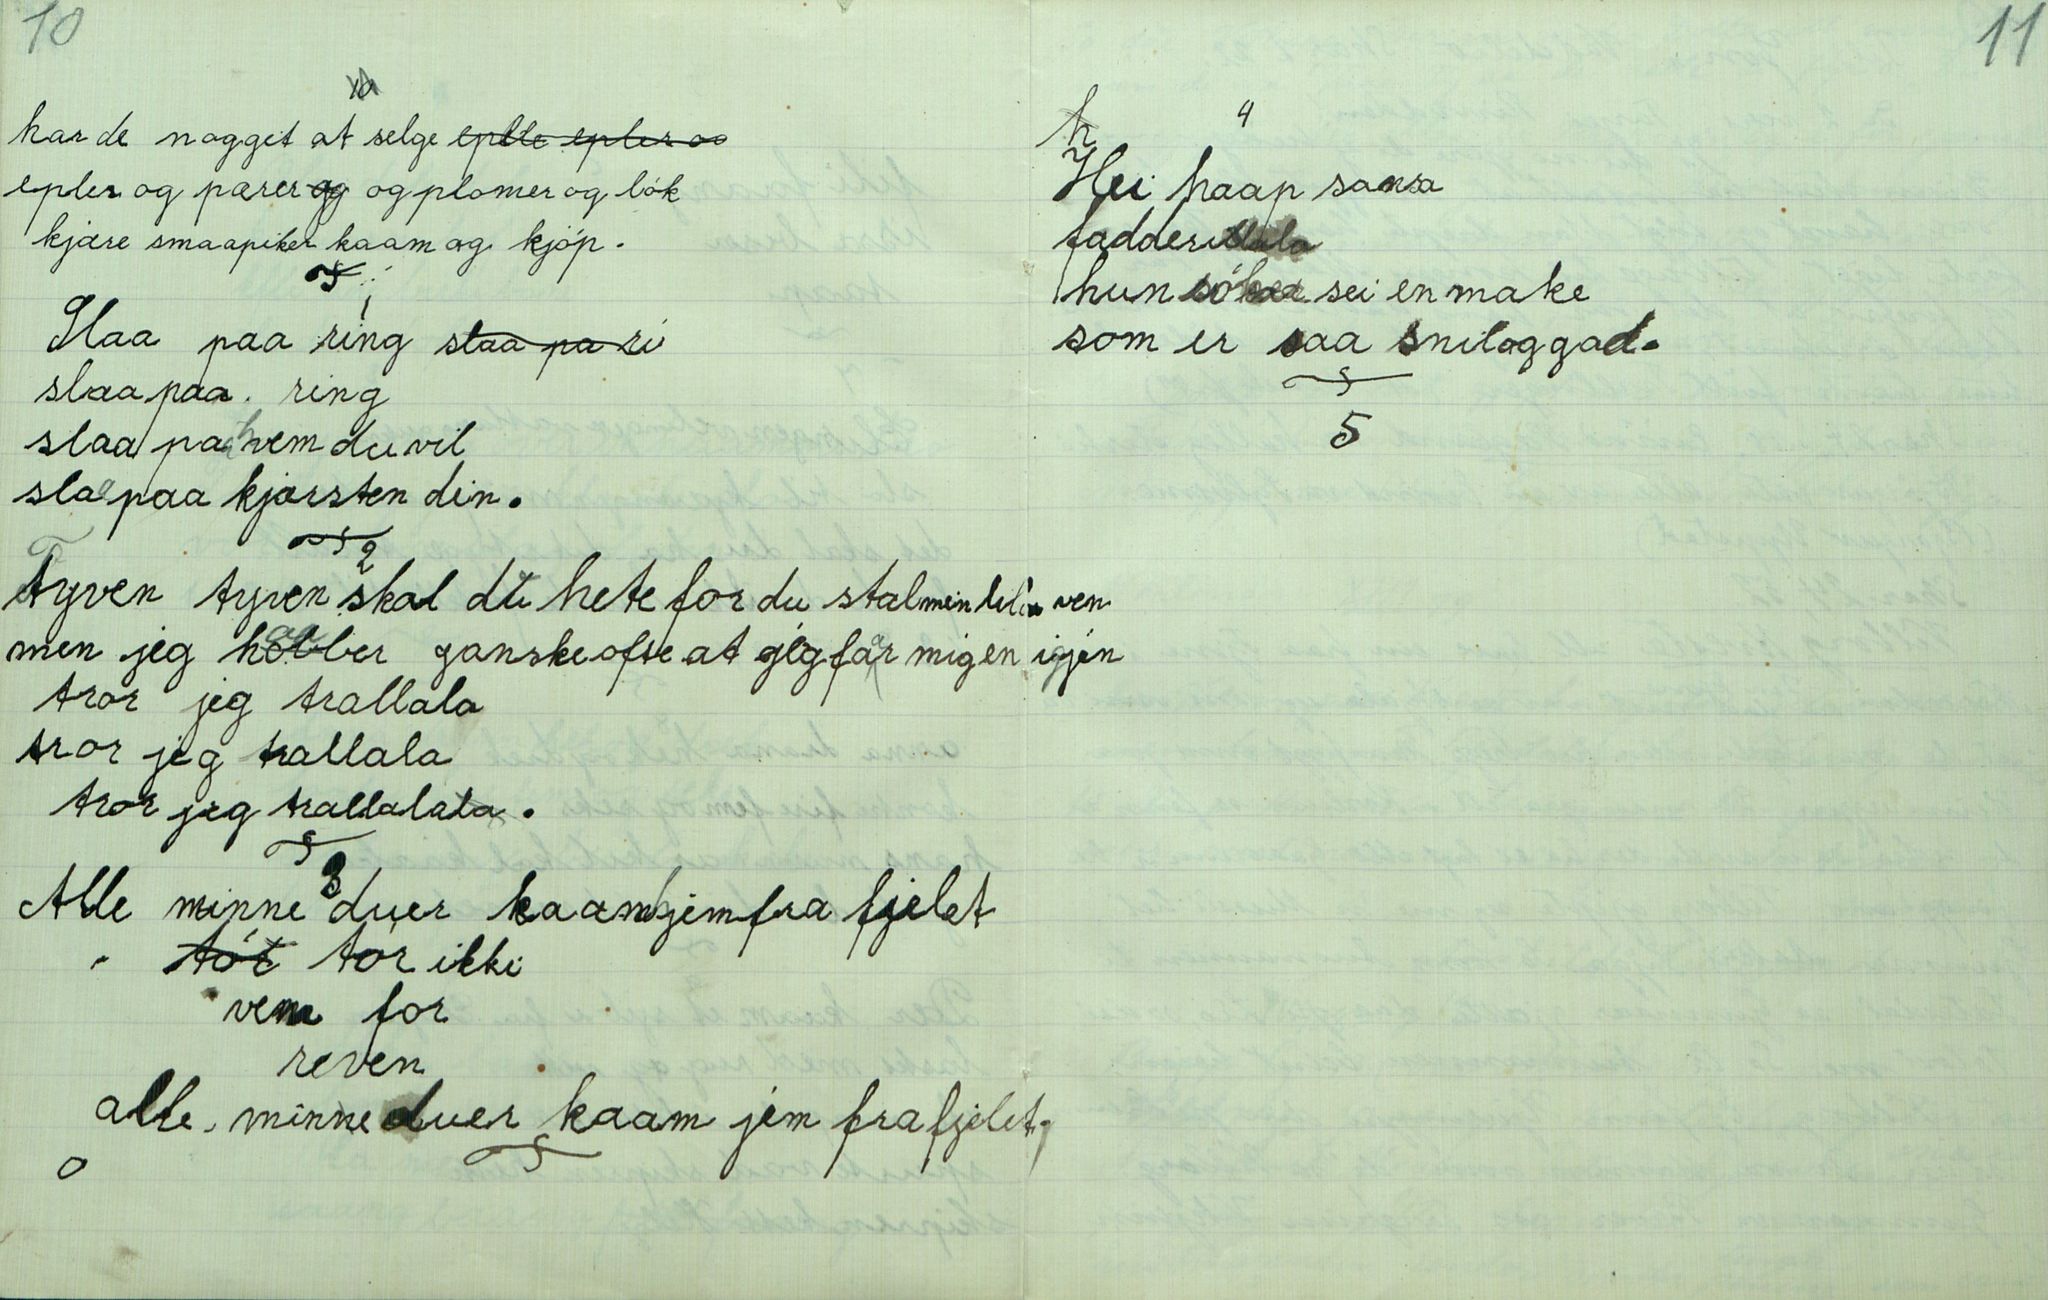 10
har de nogget at selge eplle epler og
epler og pærer og og plomer og lök
kjære smaapiker kaam og kjöp.
1
Slaa paa ring slaa pa ri
slaa paa. ring
slaa paa hvem du vil
slaa paa kjærsten din.
2
Tyven tyven skal du hete for du stal min lille ven
men jeg haaber ganske ofte at jeg får mig en igjén
tror jeg trallala
tror jeg trallala
tror jeg trallalala.
3
Alle minne duer kaam hjem fra fjelet
tör tör ikki
vem for
reven
alle. minne duer kaam jem fra fjelet.
11
h
4
Hei haap sansa
fadderullala
hun söker sei en make
som er saa snil og gad.
5